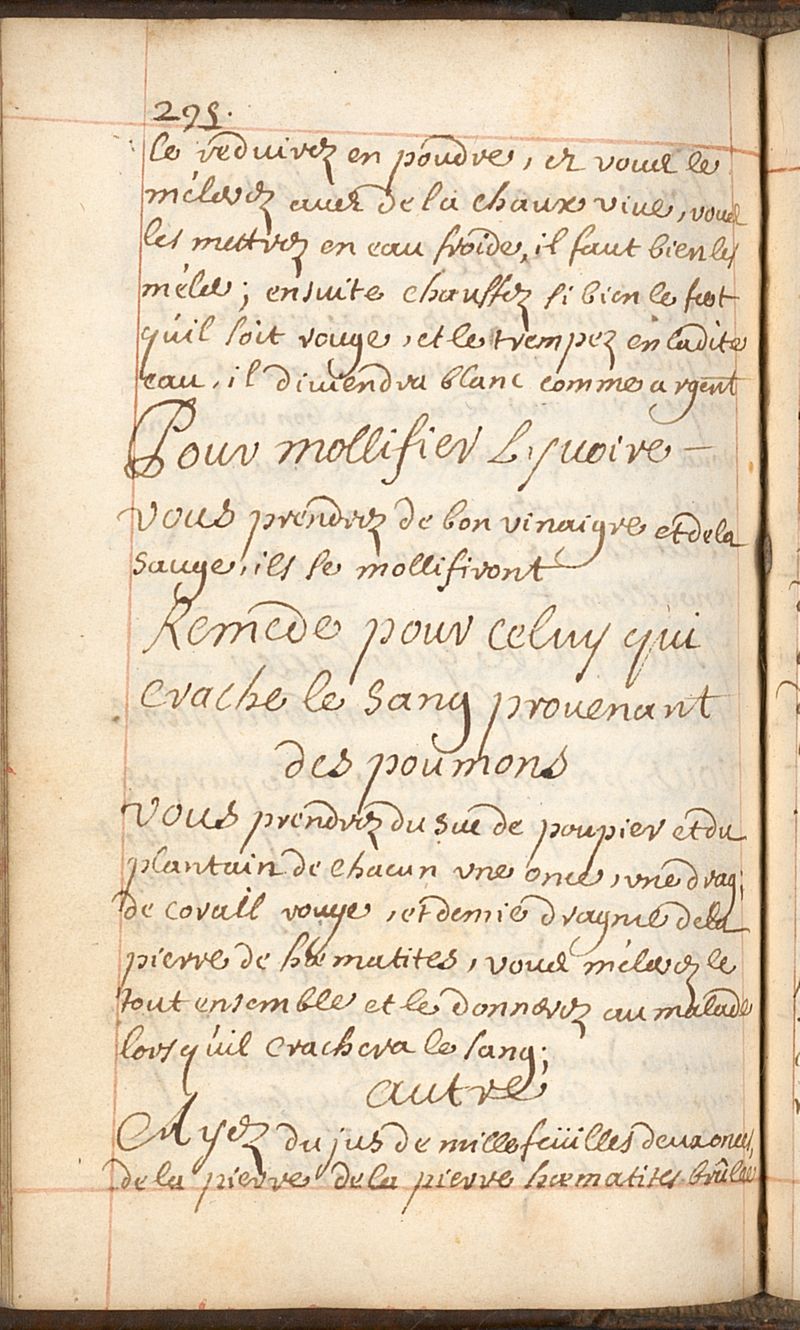 295.
le reduirez en poudre, et vous le
mélerez avec de la chaux vive, vous
les mettrez en eau froide, il faut bien les
méler; ensuite chauffez si bien le fert
qu'il soit rouge, et le trempez en ladite
eau, il diviendra blanc comme argent
Pour mollifier Lyvoire –
vous prendrez de bon vinaigre et de la
sauge, ils se mollifiront
Remede pour celuy qui
crache le sang provenant
des poumons
vous prendrez du suc de poupier et du
plantain de chacun une once, une drag;
de corail rouge, et demie dragme de la
pierre de hæmatites, vous mélerez le
tout ensemble et le donnerez au malade
lors qu'il crachera le sang;
autre
Ayez du jus de millefeüilles deux onces,
de la pierre de la pierre hæmatites brûlée